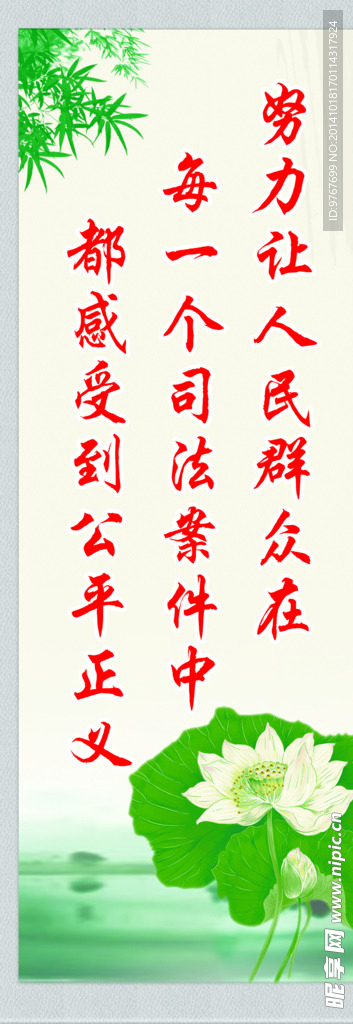 努力让人民群众在
每一个司法案件中
都感受到公平正义
ID:9767699 NO:20141018170114317924
昵享网 www.nipic.cn